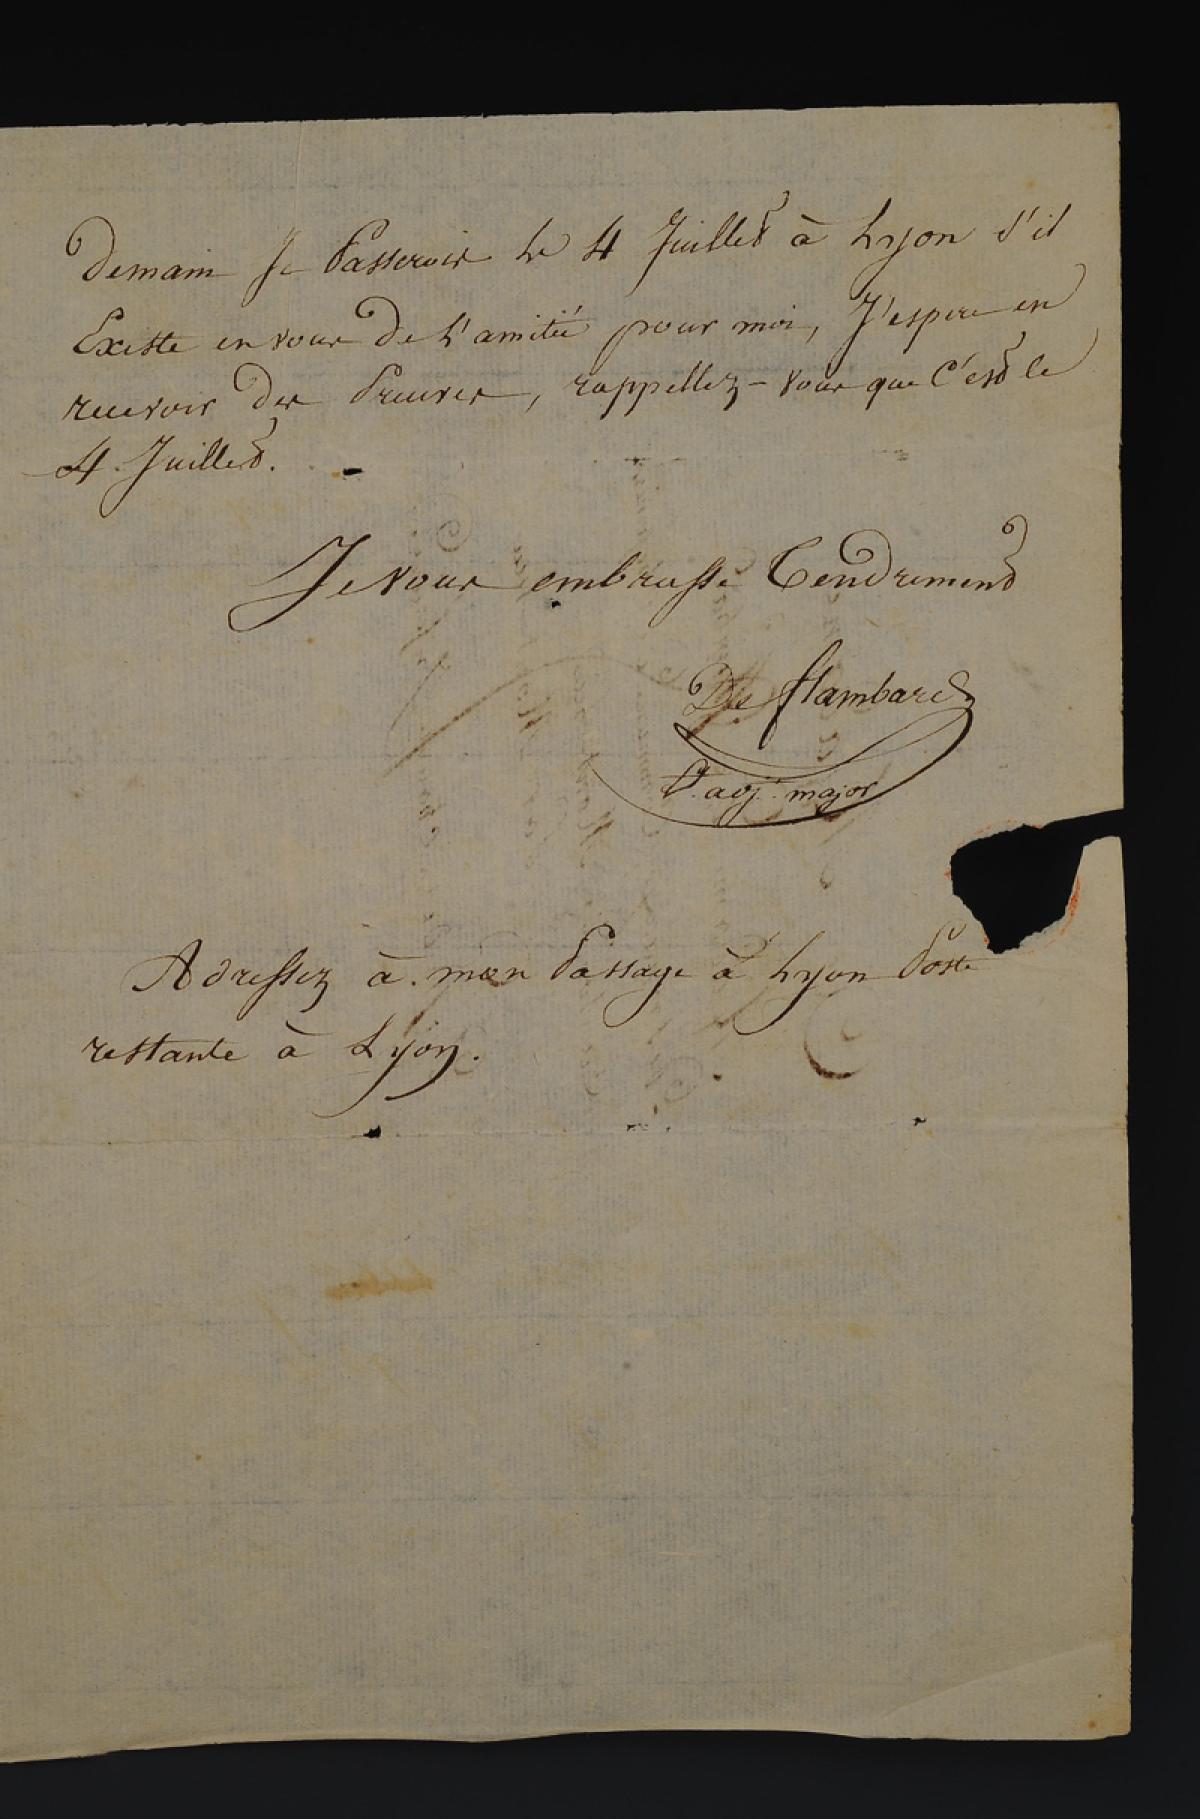 Demain Je Passerais le 4 Juillet à Lyon s'il
Existe en vous De l'amitié pour moi, J'espere en
recevoir Des Preuves, rappellez-vous que C'est le
4 Juillet.
Je vous embrasse Tendrement
De flambard
adj.t major
Adressez à mon Passage à Lyon Poste
restante à Lyon.